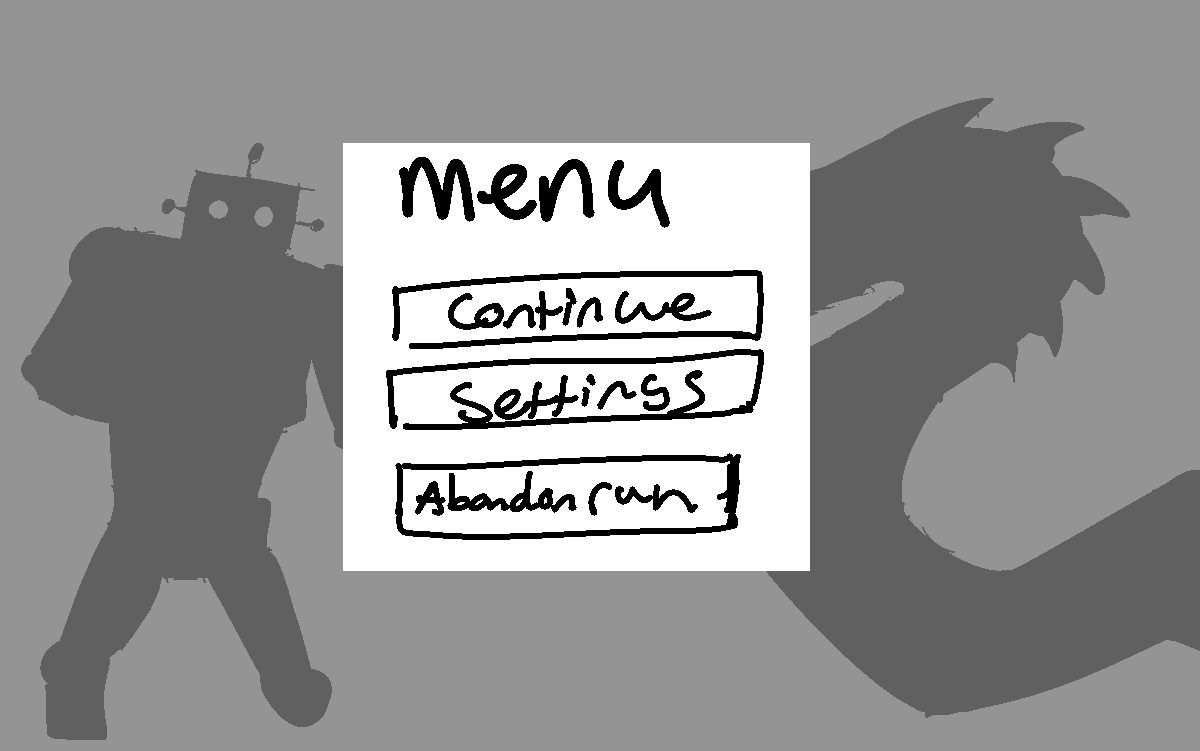 menu
Continue
Settings
Abandon run